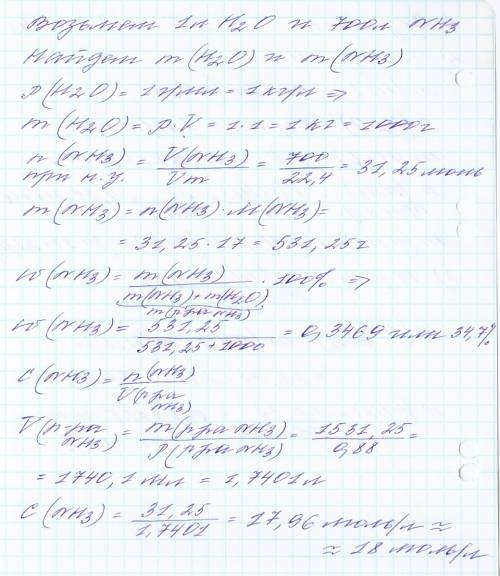 Возьмем 1л H2O и 700л NH3
Найдем m(H2O) и m(NH3)
ρ(H2O) = 1 г/мл = 1 кг/л ⇒
m(H2O) = ρ·V = 1·1 = 1 кг = 1000г
n(NH3) при н.у. = V(NH3)/Vm = 700/22,4 = 31,25 моль
m(NH3) = n(NH3)·M(NH3) =
= 31,25·17 = 531,25г
w(NH3) = m(NH3)/m(NH3)+m(H2O) m(р-ра NH3) · 100% ⇒
w(NH3) = 531,25/531,25+1000 = 0,3469 или 34,7%
C(NH3) = n(NH3)/V(р-ра NH3)
V(р-ра NH3) = m(р-ра NH3)/ρ(р-ра NH3) = 1531,25/0,88 =
= 1740,1 мл = 1,7401л
C(NH3) = 31,25/1,7401 = 17,96 моль/л ≈
≈ 18 моль/л